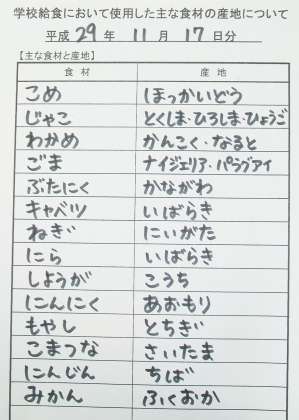 学校給食において使用した主な食材の産地について
平成 29 年 11 月 17 日分
【主な食材と産地】
食材 産地
こめ ほっかいどう
じゃこ とくしま・ひろしま・ひょうご
わかめ かんこく・なると
ごま ナイジェリア・パラグアイ
ぶたにく かながわ
キャベツ いばらき
ねぎ にいがた
にら いばらき
しょうが こうち
にんにく あおもり
もやし とちぎ
こまつな さいたま
にんじん ちば
みかん ふくおか